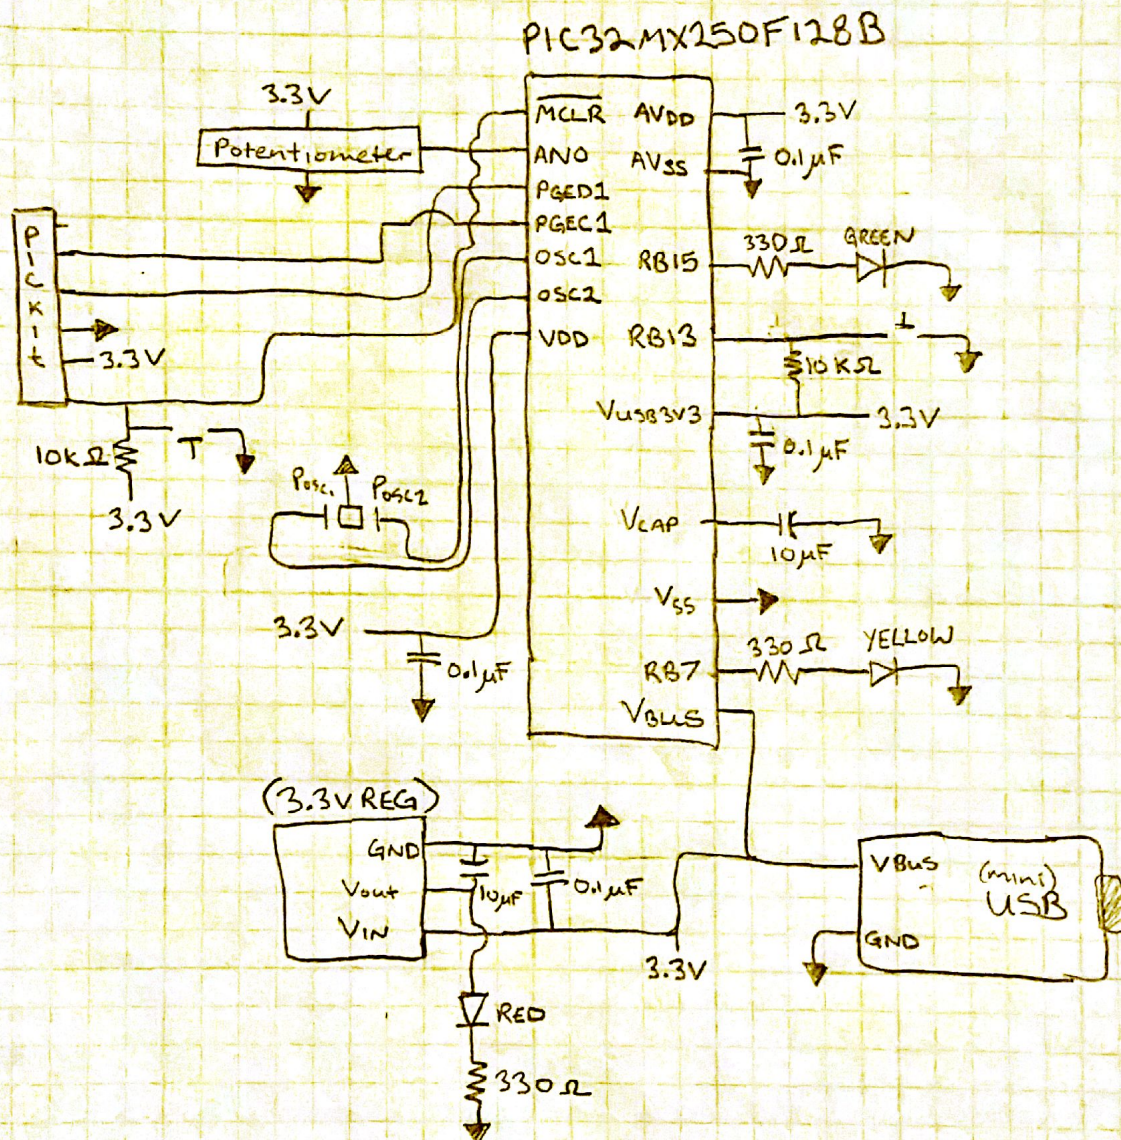 PIC32MX250F128B
3.3V
Potentiometer
MCLR
AN0
PGED1
PGEC1
OSC1
OSC2
VDD
AVDD
AVSS
RB15
RB13
VUSB3V3
VCAP
VSS
RB7
VBUS
3.3V
0.1µF
330Ω
GREEN
10KΩ
3.3V
0.1µF
10µF
330Ω
YELLOW
PICkit
3.3V
10KΩ
3.3V
Posc1
Posc2
3.3V
0.1µF
(3.3V REG)
GND
Vout
VIN
10µF
0.1µF
3.3V
RED
330Ω
VBUS
(mini)
USB
GND